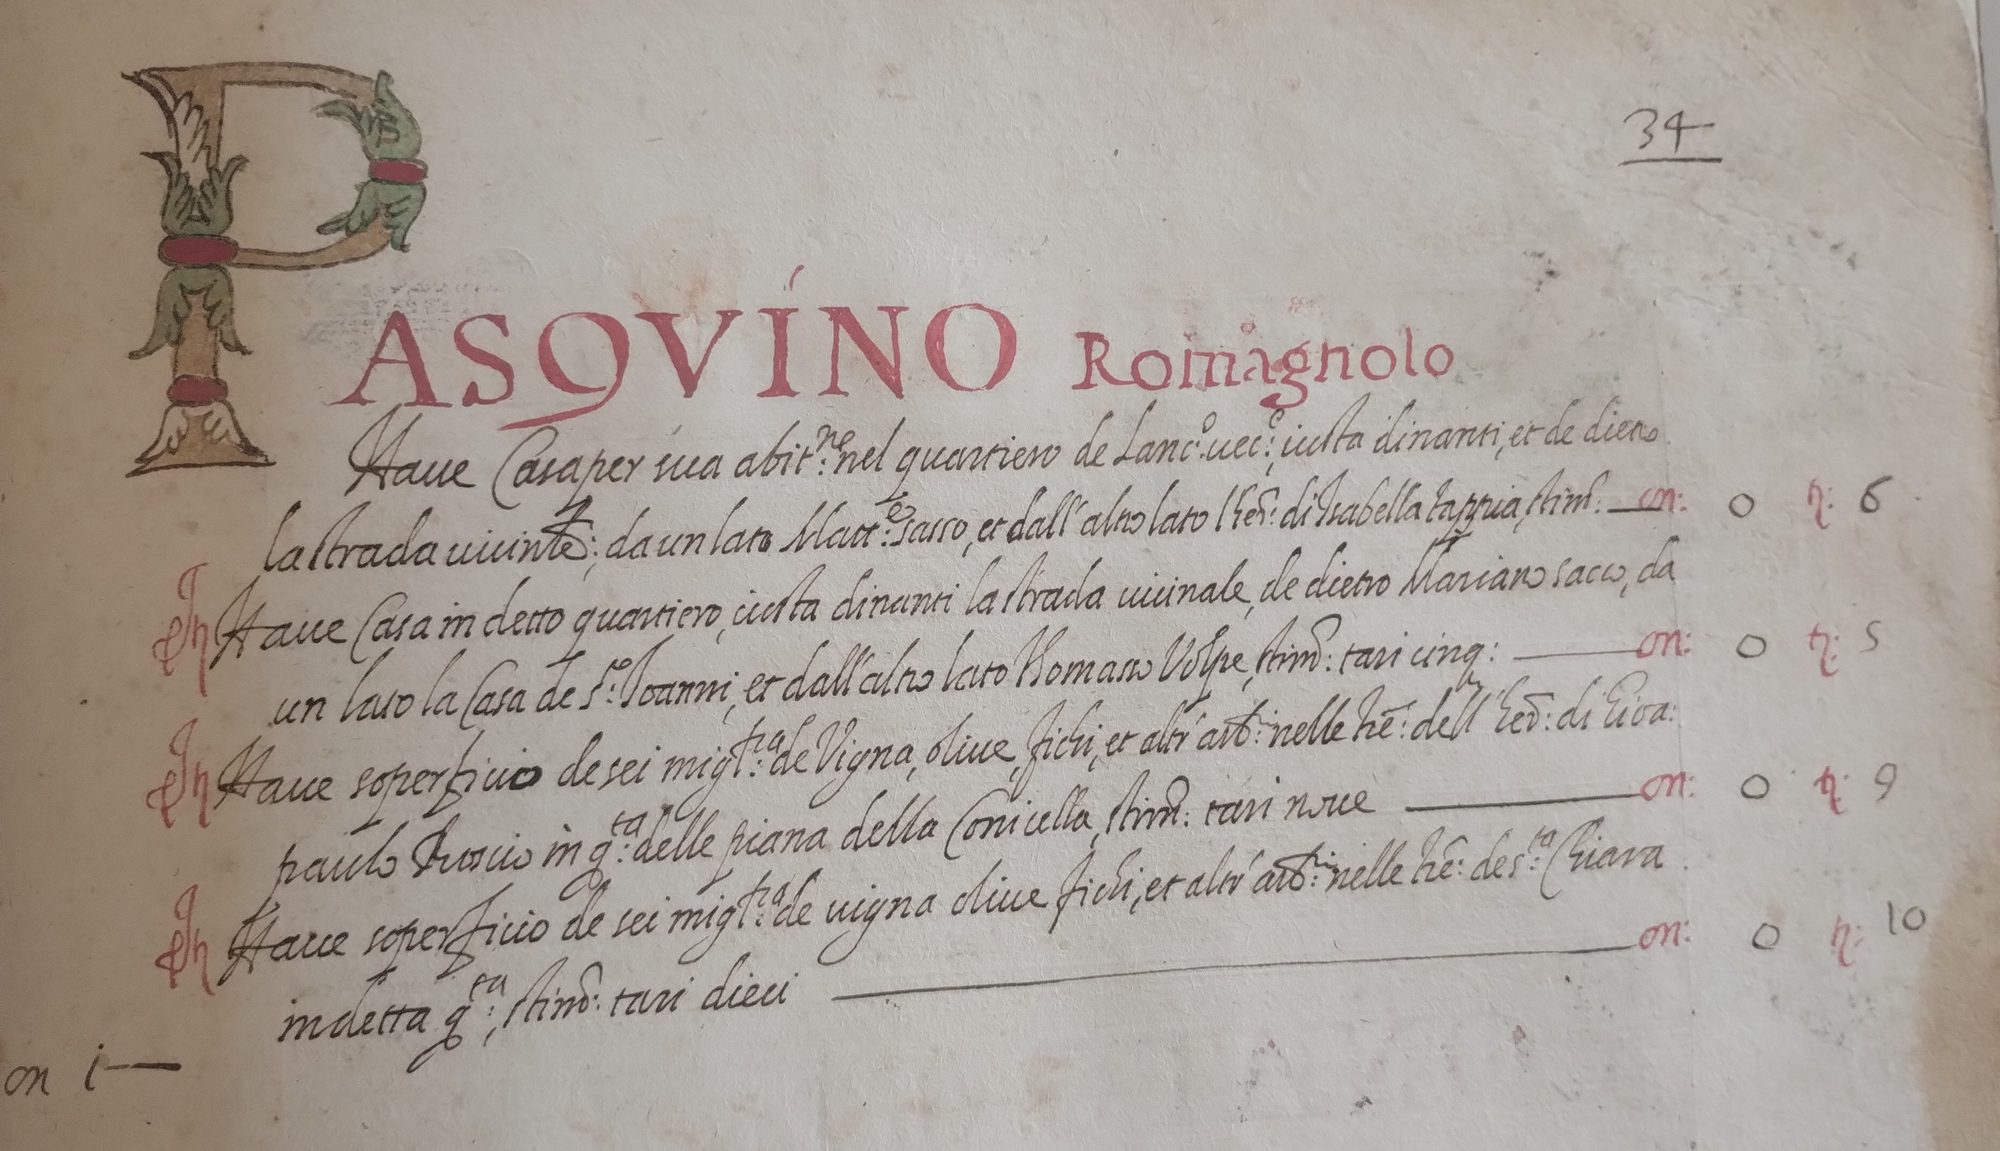 34
PASQVINO Romagnolo
Haue Casa per sua abit:ne nel quartiero de Lanc:o uec:o, iusta dinanti, et de dietro
la strada uicinle:, da un lato Matt:eo sasso, et dall'altro lato l'hed: di Isabella tappia, stim: on: 0 tt: 6
In Haue Casa in detto quartiero, iusta dinanti la strada uicinale, de dietro Mariano sacco, da
un lato la Casa de S:to Ioanni, et dall'altro lato Romano Volpe, stim: tari cinq: on: 0 tt: 5
In Haue soperficio de sei migl:ra de Vigna, oliue, fichi, et altr' arb:ri nelle tre: dell' hed: di Gioa:
paulo Ruscio in q:ta delle piana della Conicella, stim: tari noue on: 0 tt: 9
In Haue soperficio de sei migl:ra de uigna oliue fichi, et altr' arb:ri nelle tre: de s:ta Chiara
in detta q:ta, stim: tari dieci on: 0 tt: 10
on i